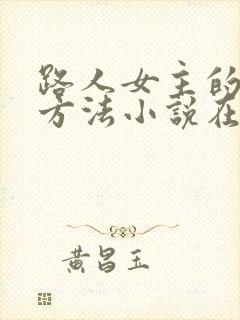 路人女主的
方法小說在
黄昌玉